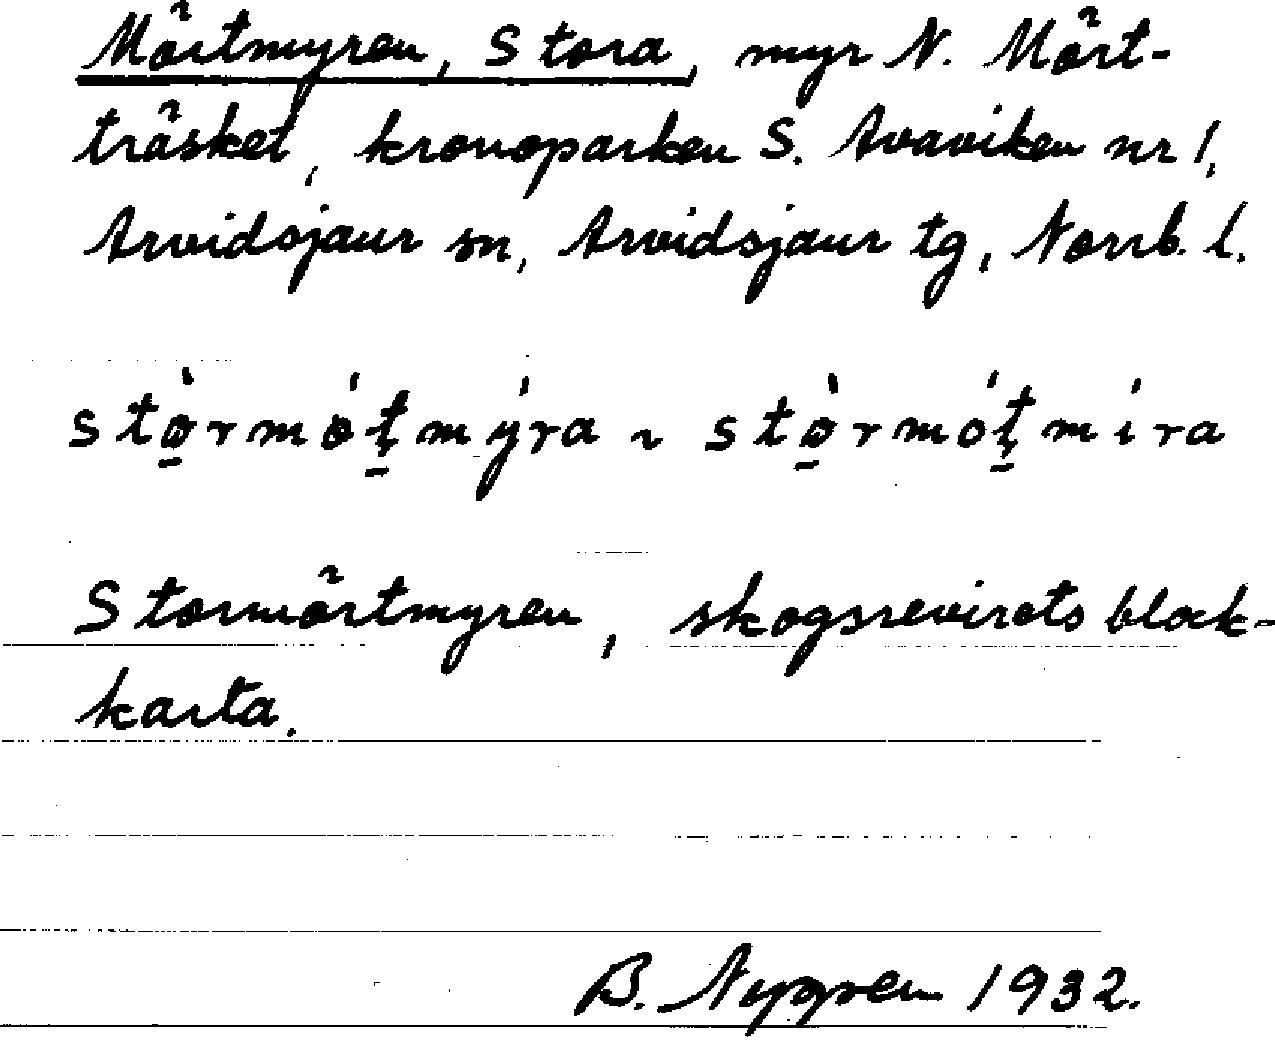 Mörtmyren, Stora, myr N. Mört-
träsket, kronoparken S. Avaviken nr 1,
Arvidsjaur sn, Arvidsjaur tg, Norrb. l.
stò̱rmóṯmýra ~ stò̱rmóṯmíra
Stormörtmyren, skogsrevirets block-
karta.
B. Nygren 1932.